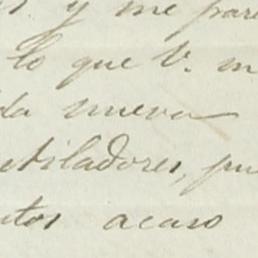 y me pare
lo que V. m
da nueva
tiladores, pu
ntos acaso